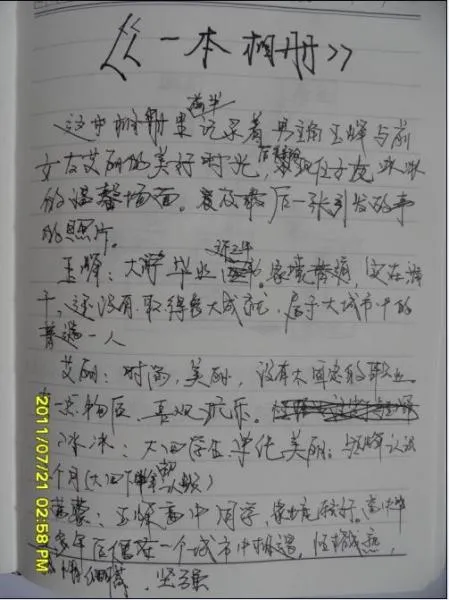 《一本相册》
前半
这本相册里记录着男主角王辉与前
女友艾丽的美好时光,现任女友冰冰
的温馨场面。最后一张引发的事
的照片。
王辉:大学毕业近三年。家境普通,实在
干,还没有取得多大成就,属于大城市中的
普通一人
艾丽:时尚,美丽,没有太固定的职业。
物质、喜欢玩乐。
冰冰:大四学生,单纯美丽,与王辉认识
个月(大四下)
王辉高中同学,家庭较好。高中毕
多年后偶尔在一个城市中相遇,性格
坚强
2011/07/21 02:58 PM